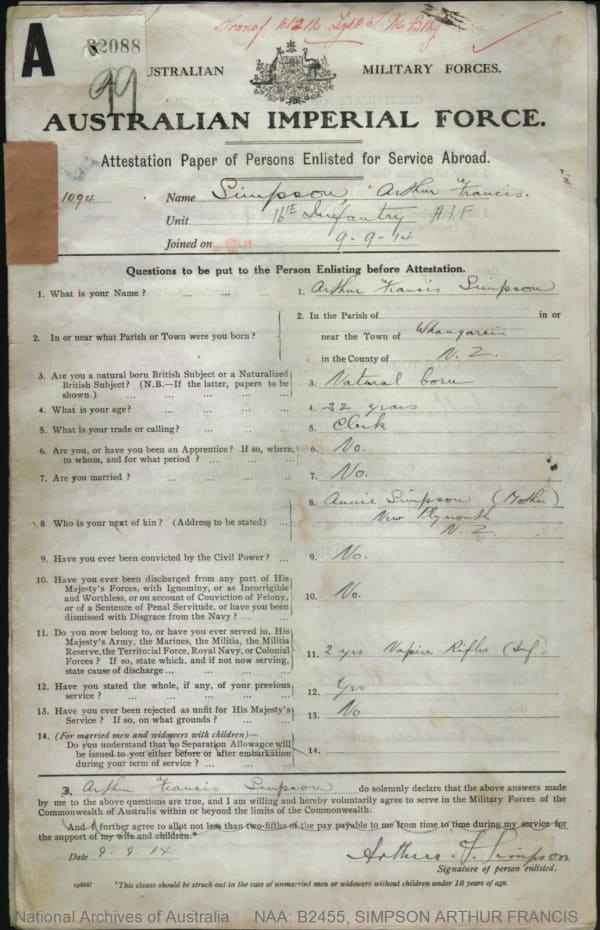 Transf to 2 M. Light T. M. Bty
A
82088
99
AUSTRALIAN MILITARY FORCES.
AUSTRALIAN IMPERIAL FORCE.
Attestation Paper of Persons Enlisted for Service Abroad.
1094
Name Simpson, Arthur Francis.
Unit 16th Infantry A.I.F
Joined on 9-9-14
Questions to be put to the Person Enlisting before Attestation.
1. What is your Name? ... ... ... 1. Arthur Francis Simpson
2. In or near what Parish or Town were you born? 2. In the Parish of in or
near the Town of Whangarei
in the County of N. Z.
3. Are you a natural born British Subject or a Naturalized
British Subject? (N.B.—If the latter, papers to be
shown.) ... ... ... ... 3. Natural born
4. What is your age? ... ... ... 4. 22 years
5. What is your trade or calling? ... ... 5. Clerk
6. Are you, or have you been an Apprentice? If so, where,
to whom, and for what period? ... ... ... 6. No.
7. Are you married? ... ... ... 7. No.
8 Who is your next of kin? (Address to be stated) ... 8. Annie Simpson (Mother)
New Plymouth
N. Z.
9. Have you ever been convicted by the Civil Power? ... 9. No.
10. Have you ever been discharged from any part of His
Majesty's Forces, with Ignominy, or as Incorrigible
and Worthless, or on account of Conviction of Felony,
or of a Sentence of Penal Servitude, or have you been
dismissed with Disgrace from the Navy? ... ... 10. No.
11. Do you now belong to, or have you ever served in, His
Majesty's Army, the Marines, the Militia, the Militia
Reserve, the Territorial Force, Royal Navy, or Colonial
Forces? If so, state which, and if not now serving,
state cause of discharge ... ... ... 11. 2 yrs Napier Rifles (Inf.)
12. Have you stated the whole, if any, of your previous
service? ... ... ... ... 12. Yes
13. Have you ever been rejected as unfit for His Majesty's
Service? If so, on what grounds? ... ... 13. No
14. (For married men and widowers with children)—
Do you understand that no Separation Allowance will
be issued to you either before or after embarkation
during your term of service? ... ... 14.
I, Arthur Francis Simpson do solemnly declare that the above answers made
by me to the above questions are true, and I am willing and hereby voluntarily agree to serve in the Military Forces of the
Commonwealth of Australia within or beyond the limits of the Commonwealth.
And I further agree to allot not less than two-fifths of the pay payable to me from time to time during my service for
the support of my wife and children.*
Date 9.9.14
Arthur F. Simpson
Signature of person enlisted.
*This clause should be struck out in the case of unmarried men or widowers without children under 18 years of age.
National Archives of Australia NAA: B2455, SIMPSON ARTHUR FRANCIS